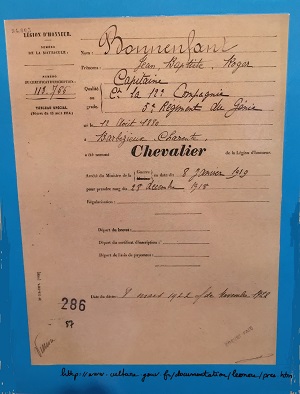 LÉGION D'HONNEUR
NUMÉRO
DE LA MATRICULE
NUMÉRO
118.766
TABLEAU SPÉCIAL
Nom : Bonnenfant
Prénoms : Jean Baptiste Roger
Qualité ou grade : Capitaine
Cn la 12e Compagnie
5e Régiment du Génie
né le 12 Août 1880
Barbezieux Charente
a été nommé Chevalier de la Légion d'honneur.
Arrêté du Ministre de la Guerre du 8 Janvier 1919
pour prendre rang du 25 décembre 1918
Régularisation :
Départ du brevet :
Départ du certificat d'inscription :
Départ de l'avis de payement :
286
57
Date du décès : 8 mars 1922
novembre 1928
http://www.culture.gouv.fr/documentation/leonore/pres.htm